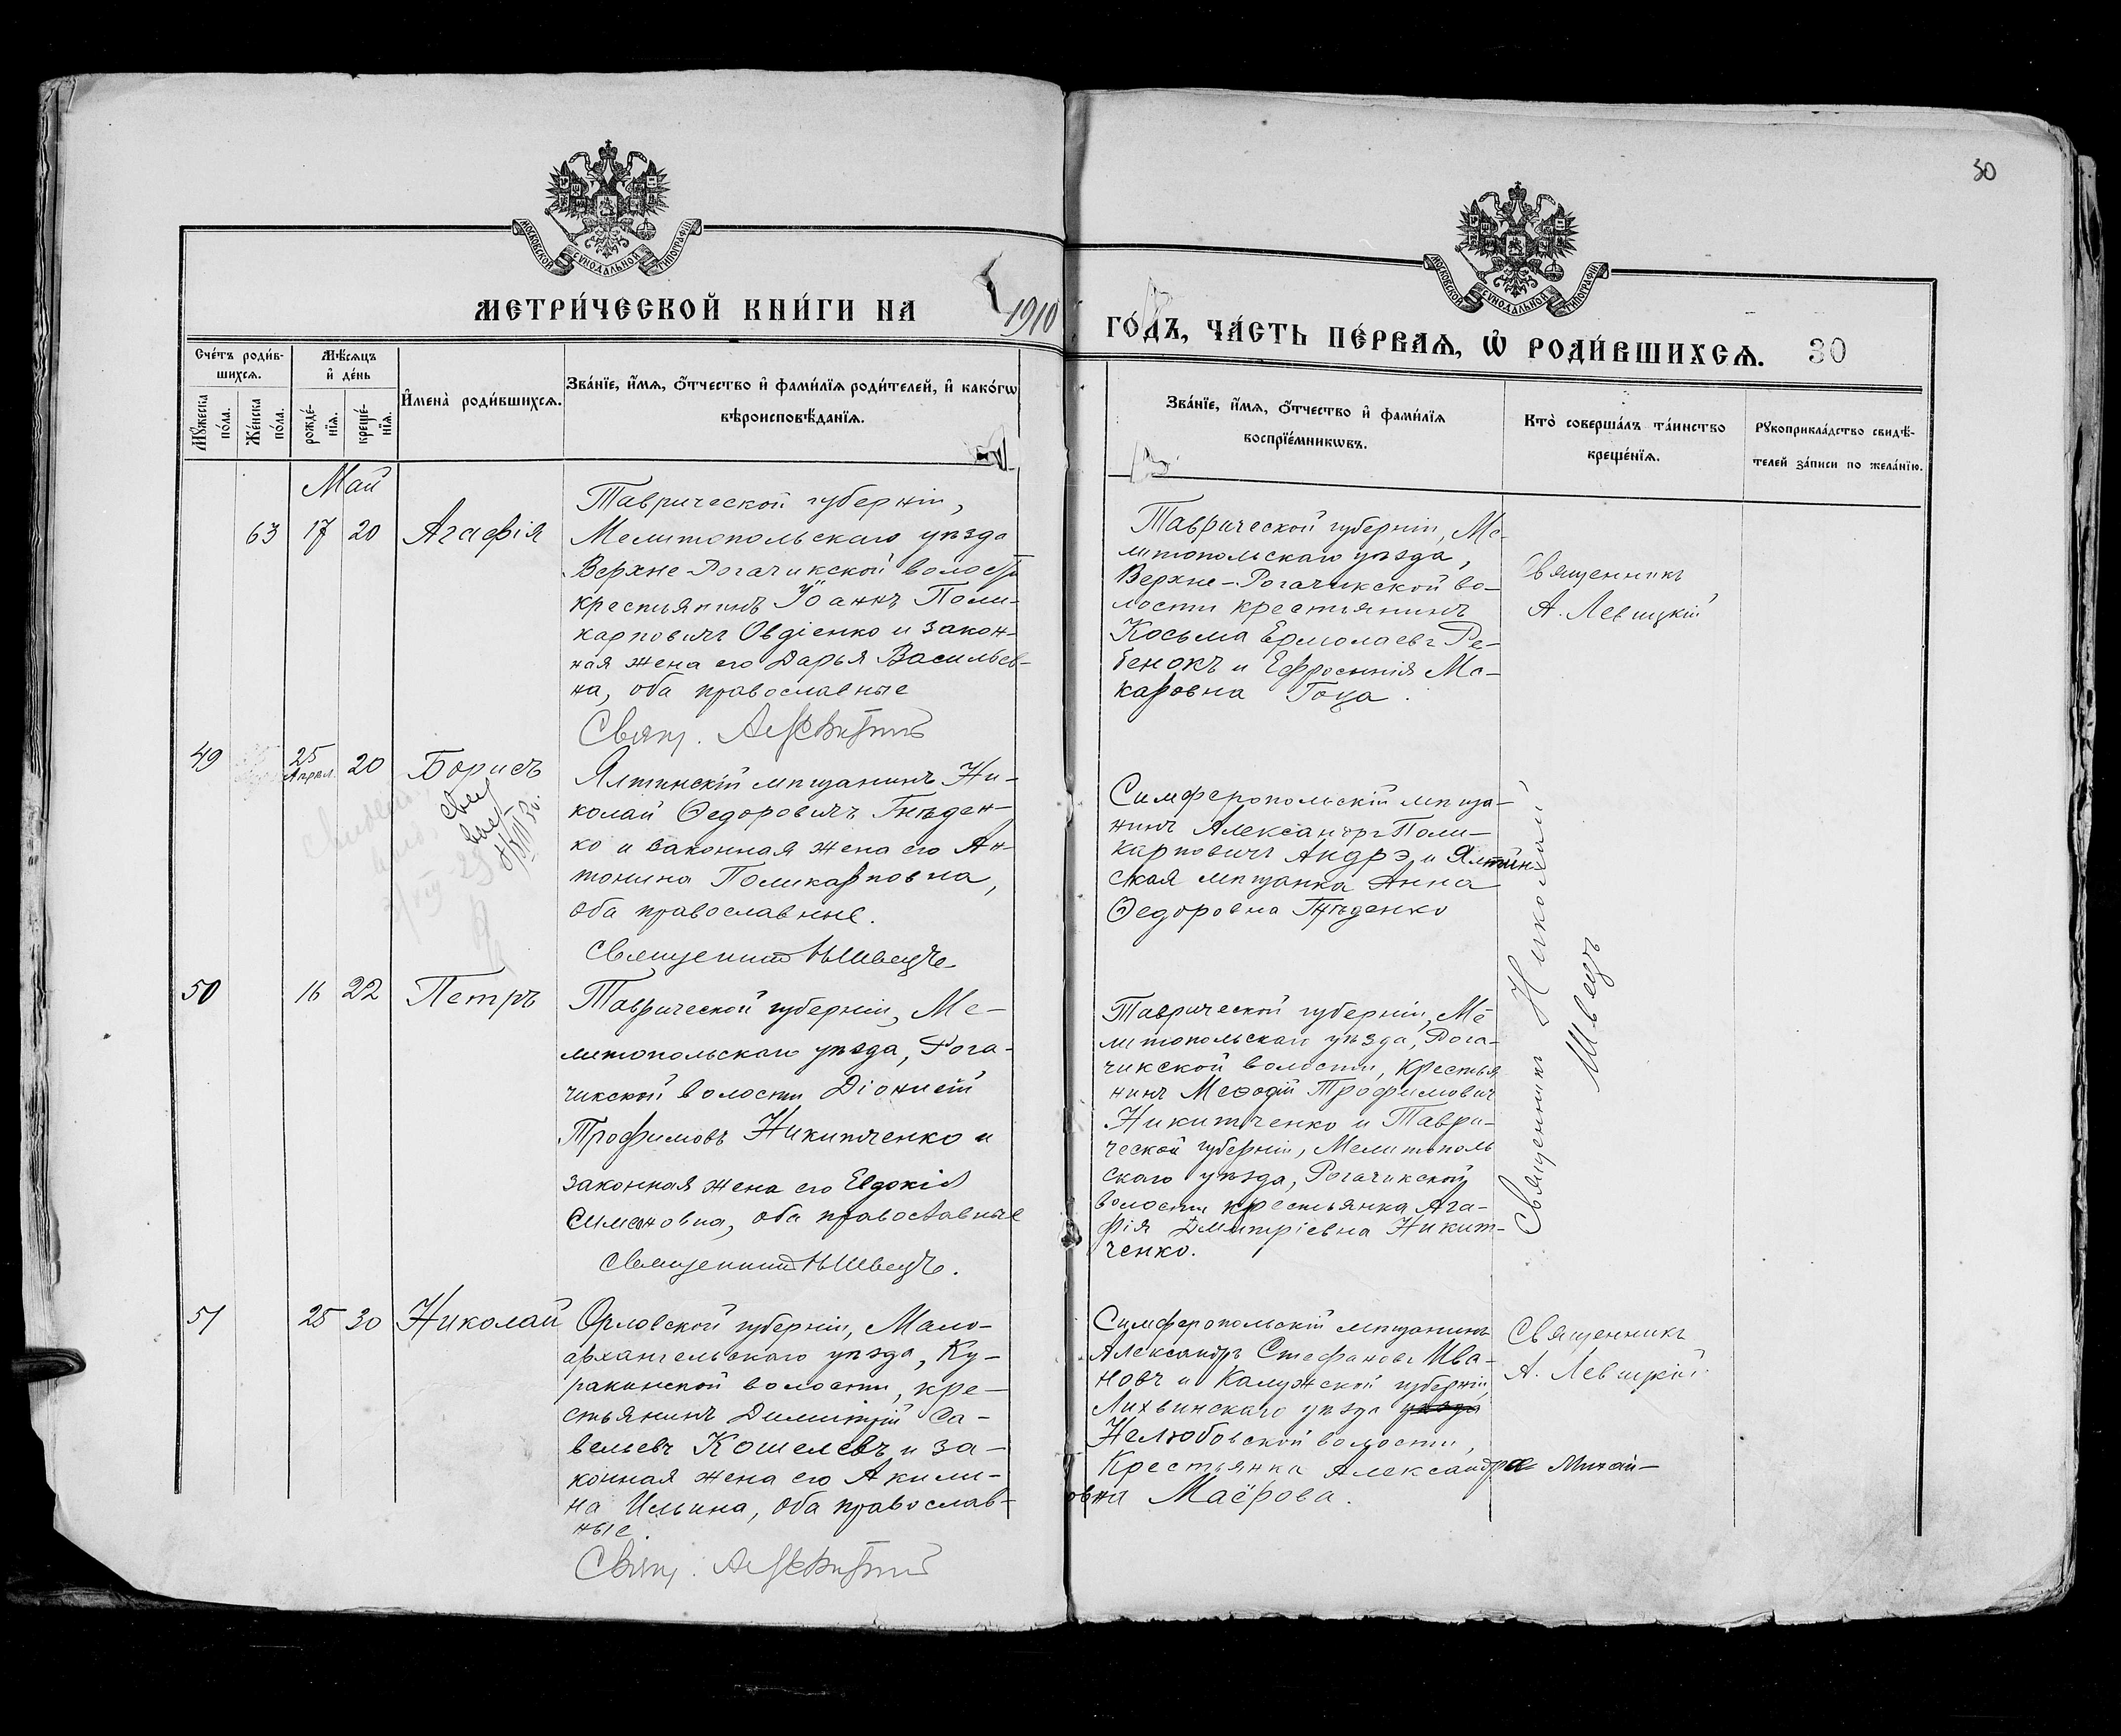 30
МОСКОВСКОЙ СУНОДАЛЬНОЙ ТИПОГРАФІИ
МОСКОВСКОЙ СУНОДАЛЬНОЙ ТИПОГРАФІИ
МЕТРИ́ЧЕСКОЙ КНИ́ГИ НА 1910
ГО́ДЪ, ЧА́СТЬ ПЕ́РВАѦ, Ѡ҆ РОДИ́ВШИХСѦ. 30
Сче́тъ роди́в-
шихсѧ.
Мꙋ́жеска
по́ла.
Же́нска
по́ла.
Мѣ́сѧцъ
и҆ де́нь
рожде́-
нїѧ.
креще́-
нїѧ.
И҆мена̀ роди́вшихсѧ.
Зва́нїе, и҆́мѧ, ѻ҆́тчество и҆ фами́лїѧ роди́телей, и҆ како́гѡ
вѣроисповѣ́данїѧ.
Зва́нїе, и҆́мѧ, ѻ҆́тчество и҆ фами́лїѧ
воспрїе́мникѡвъ.
Кто̀ соверша́лъ та́инство
креще́нїѧ.
Рꙋкоприкла́дство свидѣ́-
телей за́писи по жела́нїю.
Май
63 17 20 Агафія
Таврической губерніи,
Мелитопольскаго уѣзда
Верхне-Рогачикской волости
крестьянинъ Іоаннъ Поли-
карповичъ Овдіенко и закон-
ная жена его Дарья Васильев-
на, оба православные
Свящ. А Левицкій
Таврической губерніи, Ме-
литопольскаго уѣзда,
Верхне-Рогачикской во-
лости крестьянинъ
Косьма Ермолаевъ Ре-
бенокъ и Ефросинія Ма-
каровна Гоца.
Священникъ
А. Левицкій
49 25 Апрѣл. 20 Борисъ
Ялтинскій мѣщанинъ Ни-
колай Ѳедоровичъ Гнѣден-
ко и законная жена его Ан-
тонина Поликарповна,
оба православные.
Священникъ Н Швецъ
Симферопольскій мѣща-
нинъ Александръ Поли-
карповичъ Андрэ и Ялтин-
ская мѣщанка Анна
Ѳедоровна Гнѣденко
Священникъ Николай
Швецъ
50 16 22 Петръ
Таврической губерніи, Ме-
литопольскаго уѣзда, Рога-
чикской волости Діонисій
Трофимовъ Никитченко и
законная жена его Евдокія
Симоновна, оба православные
Священникъ Н Швецъ.
Таврической губерніи, Ме-
литопольскаго уѣзда, Рога-
чикской волости, крестья
нинъ Меѳодій Трофимович
Никитченко и Таври-
ческой губерніи, Мелитополь
скаго уѣзда, Рогачикской
волости крестьянка Ага-
фія Дмитріевна Никит-
ченко.
51 25 30 Николай
Орловской губерніи, Мало-
архангельскаго уѣзда, Ку-
ракинской волости, кре-
стьянинъ Димитрій Са-
вельевъ Кошелевъ и за-
конная жена его Акили-
на Ильина, оба православ-
ные.
Свящ. А Левицкій
Симферопольскій мѣщанинъ
Александръ Стефановъ Ива-
новъ и Калужской губерніи,
Лихвинскаго уѣзда уѣзда
Нелюбовской волости,
Крестьянка Александра Михай-
овна Маёрова.
Священникъ
А. Левицкій